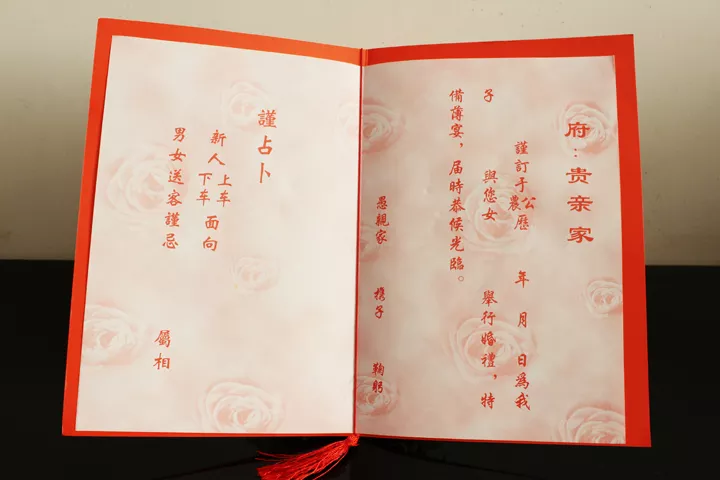 府：贵亲家
謹訂于公農歷 年 月 日為我
子 與您女 舉行婚禮，特
備薄宴，届時恭候光臨。
愚親家 携子 鞠躬
謹占卜
新人上車下車面向
男女送客謹忌
屬相